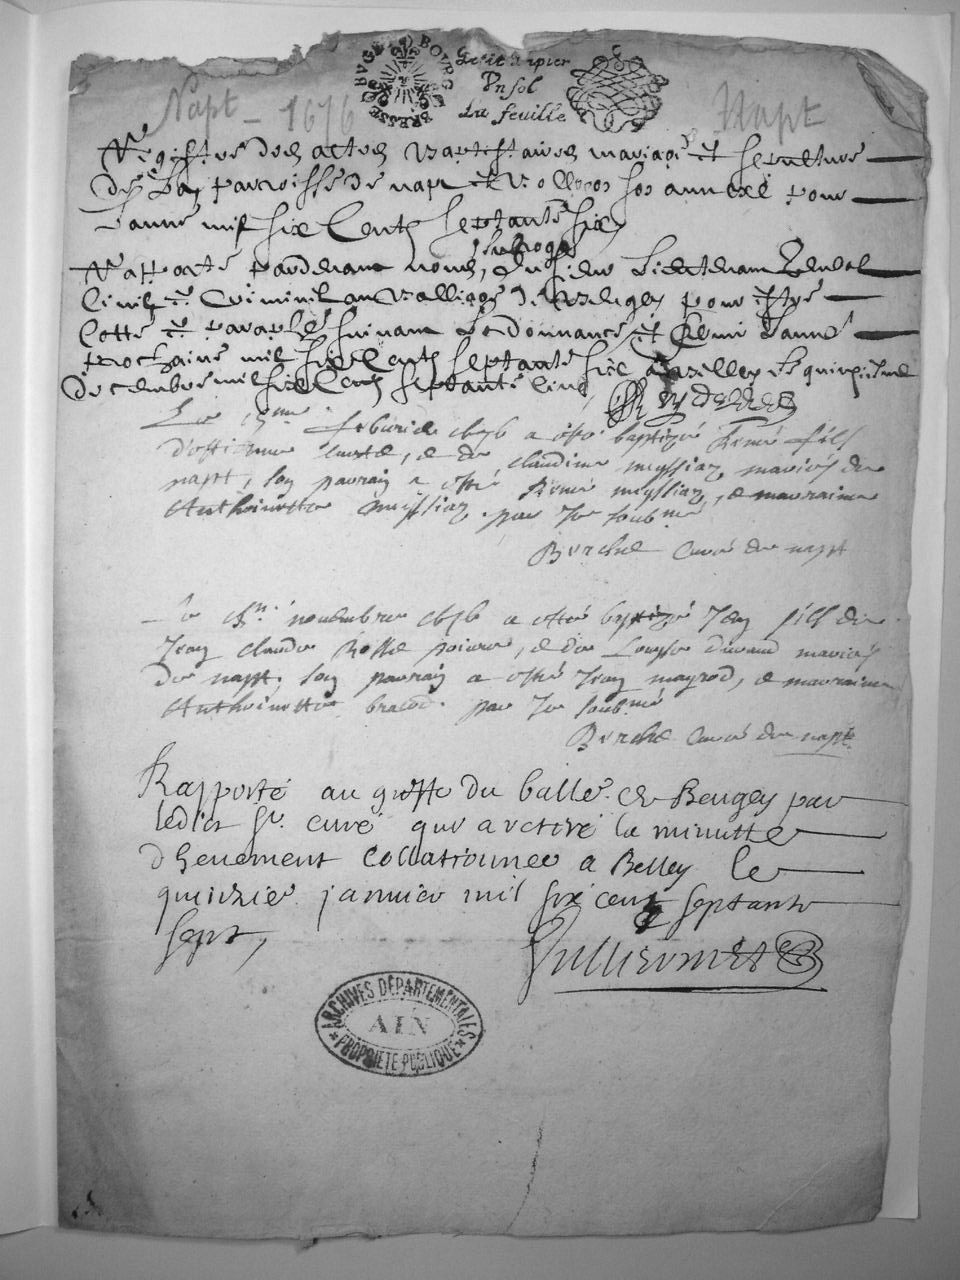 BVGEY BOVRG BRESSE
Petit papier
Vn sol
La feuille
Napt - 1676 Napt
Registre des actes Baptistaires mariage et sepulture
de la parroisse de napt et son annexe pour
Lannée mil six Cents septante six
Rapporté pardevant nous, Lieutenant General
Civil et Criminel au Balliage de Beugey pour estre
Cotté et paraphé suivant Lordonnance et servir Lannée
prochaine mil six Cents septante six a Belley Le quinzieme
Decembre mil six Cents septante Cinq
Le 15me febvrier 1676 a esté baptizé René fils
d'estienne, e de claudine myssiaz mariés de
napt, son parrain a esté René myssiaz, e marraine
Anthoinette myssiaz. par Je soubné
Berche Curé de napt
Le novembre 1676 a esté baptizé Jean fils de
Jean claude, e de Louyse durand mariés
de napt. son parrain a esté Jean mayrod, e marraine
Anthoinette. par Je soubné
Berche Curé de napt
Rapporté au greffe du balle. de Beugey par
ledict sr. curé qui a retiré la minutte
dheuement Collationnee a Belley le
quinzie. janvier mil six cent septante
sept,
ARCHIVES DÉPARTEMENTALES
AIN
* PROPRIÉTÉ PUBLIQUE *